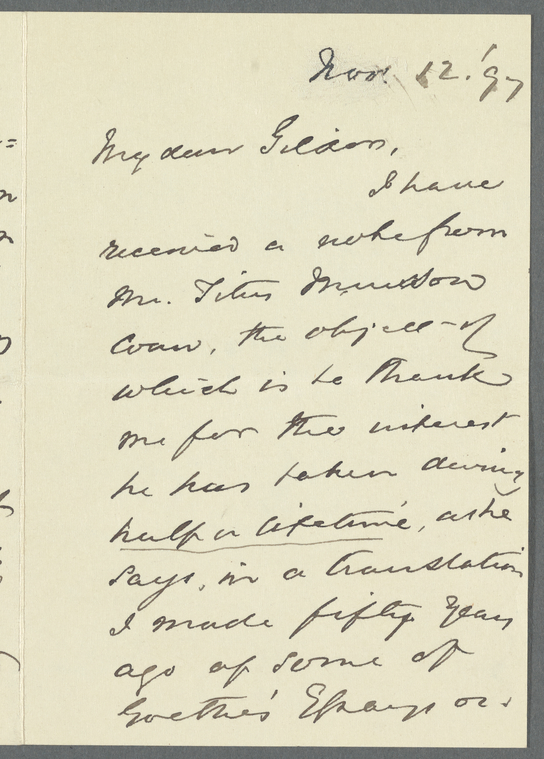 Nov. 12. '97
My dear Gilder,
I have
received a note from
Mr. Titus Munson
Coan, the object of
which is to thank
me for the interest
he has taken during
half a lifetime, as he
says, in a translation
I made fifty years
ago of some of
Goethe's Essays on